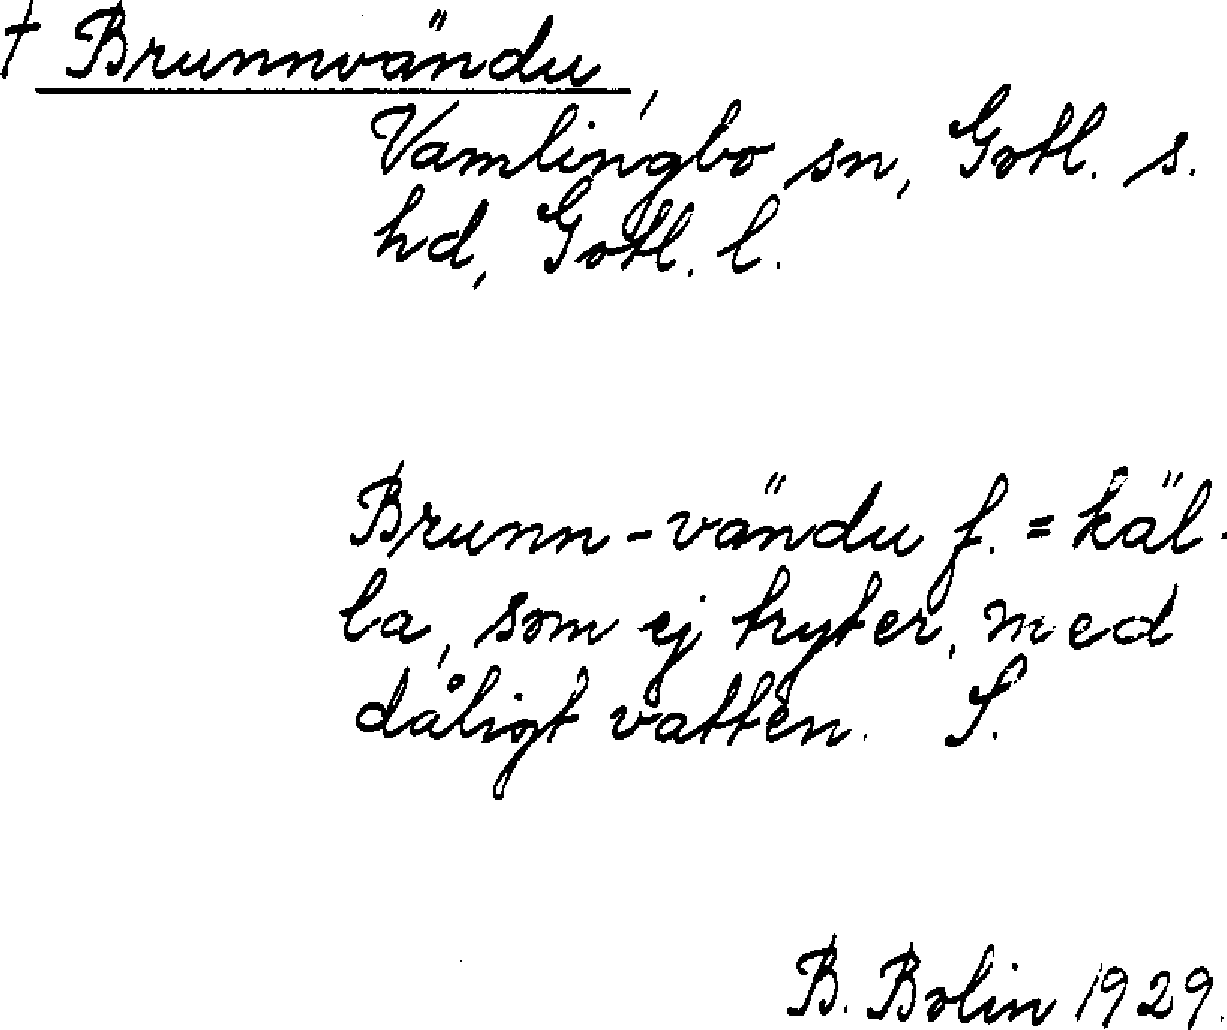 † Brunnvändu,
Vamlingbo sn, Gotl. s.
hd, Gotl. l.
Brunn-vändu f. = käl-
la, som ej tryter, med
dåligt vatten. S.
B. Bolin 1929.